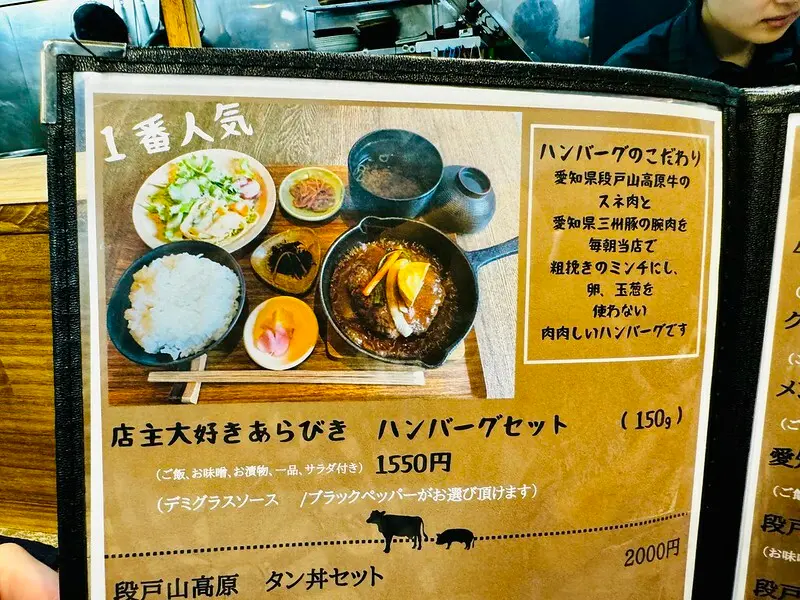 1番人気
ハンバーグのこだわり
愛知県段戸山高原牛の
スネ肉と
愛知県三州豚の腕肉を
毎朝当店で
粗挽きのミンチにし、
卵、玉葱を
使わない
肉肉しいハンバーグです
店主大好きあらびき ハンバーグセット (150g)
(ご飯、お味噌、お漬物、一品、サラダ付き) 1550円
(デミグラスソース /ブラックペッパーがお選び頂けます)
段戸山高原 タン丼セット 2000円